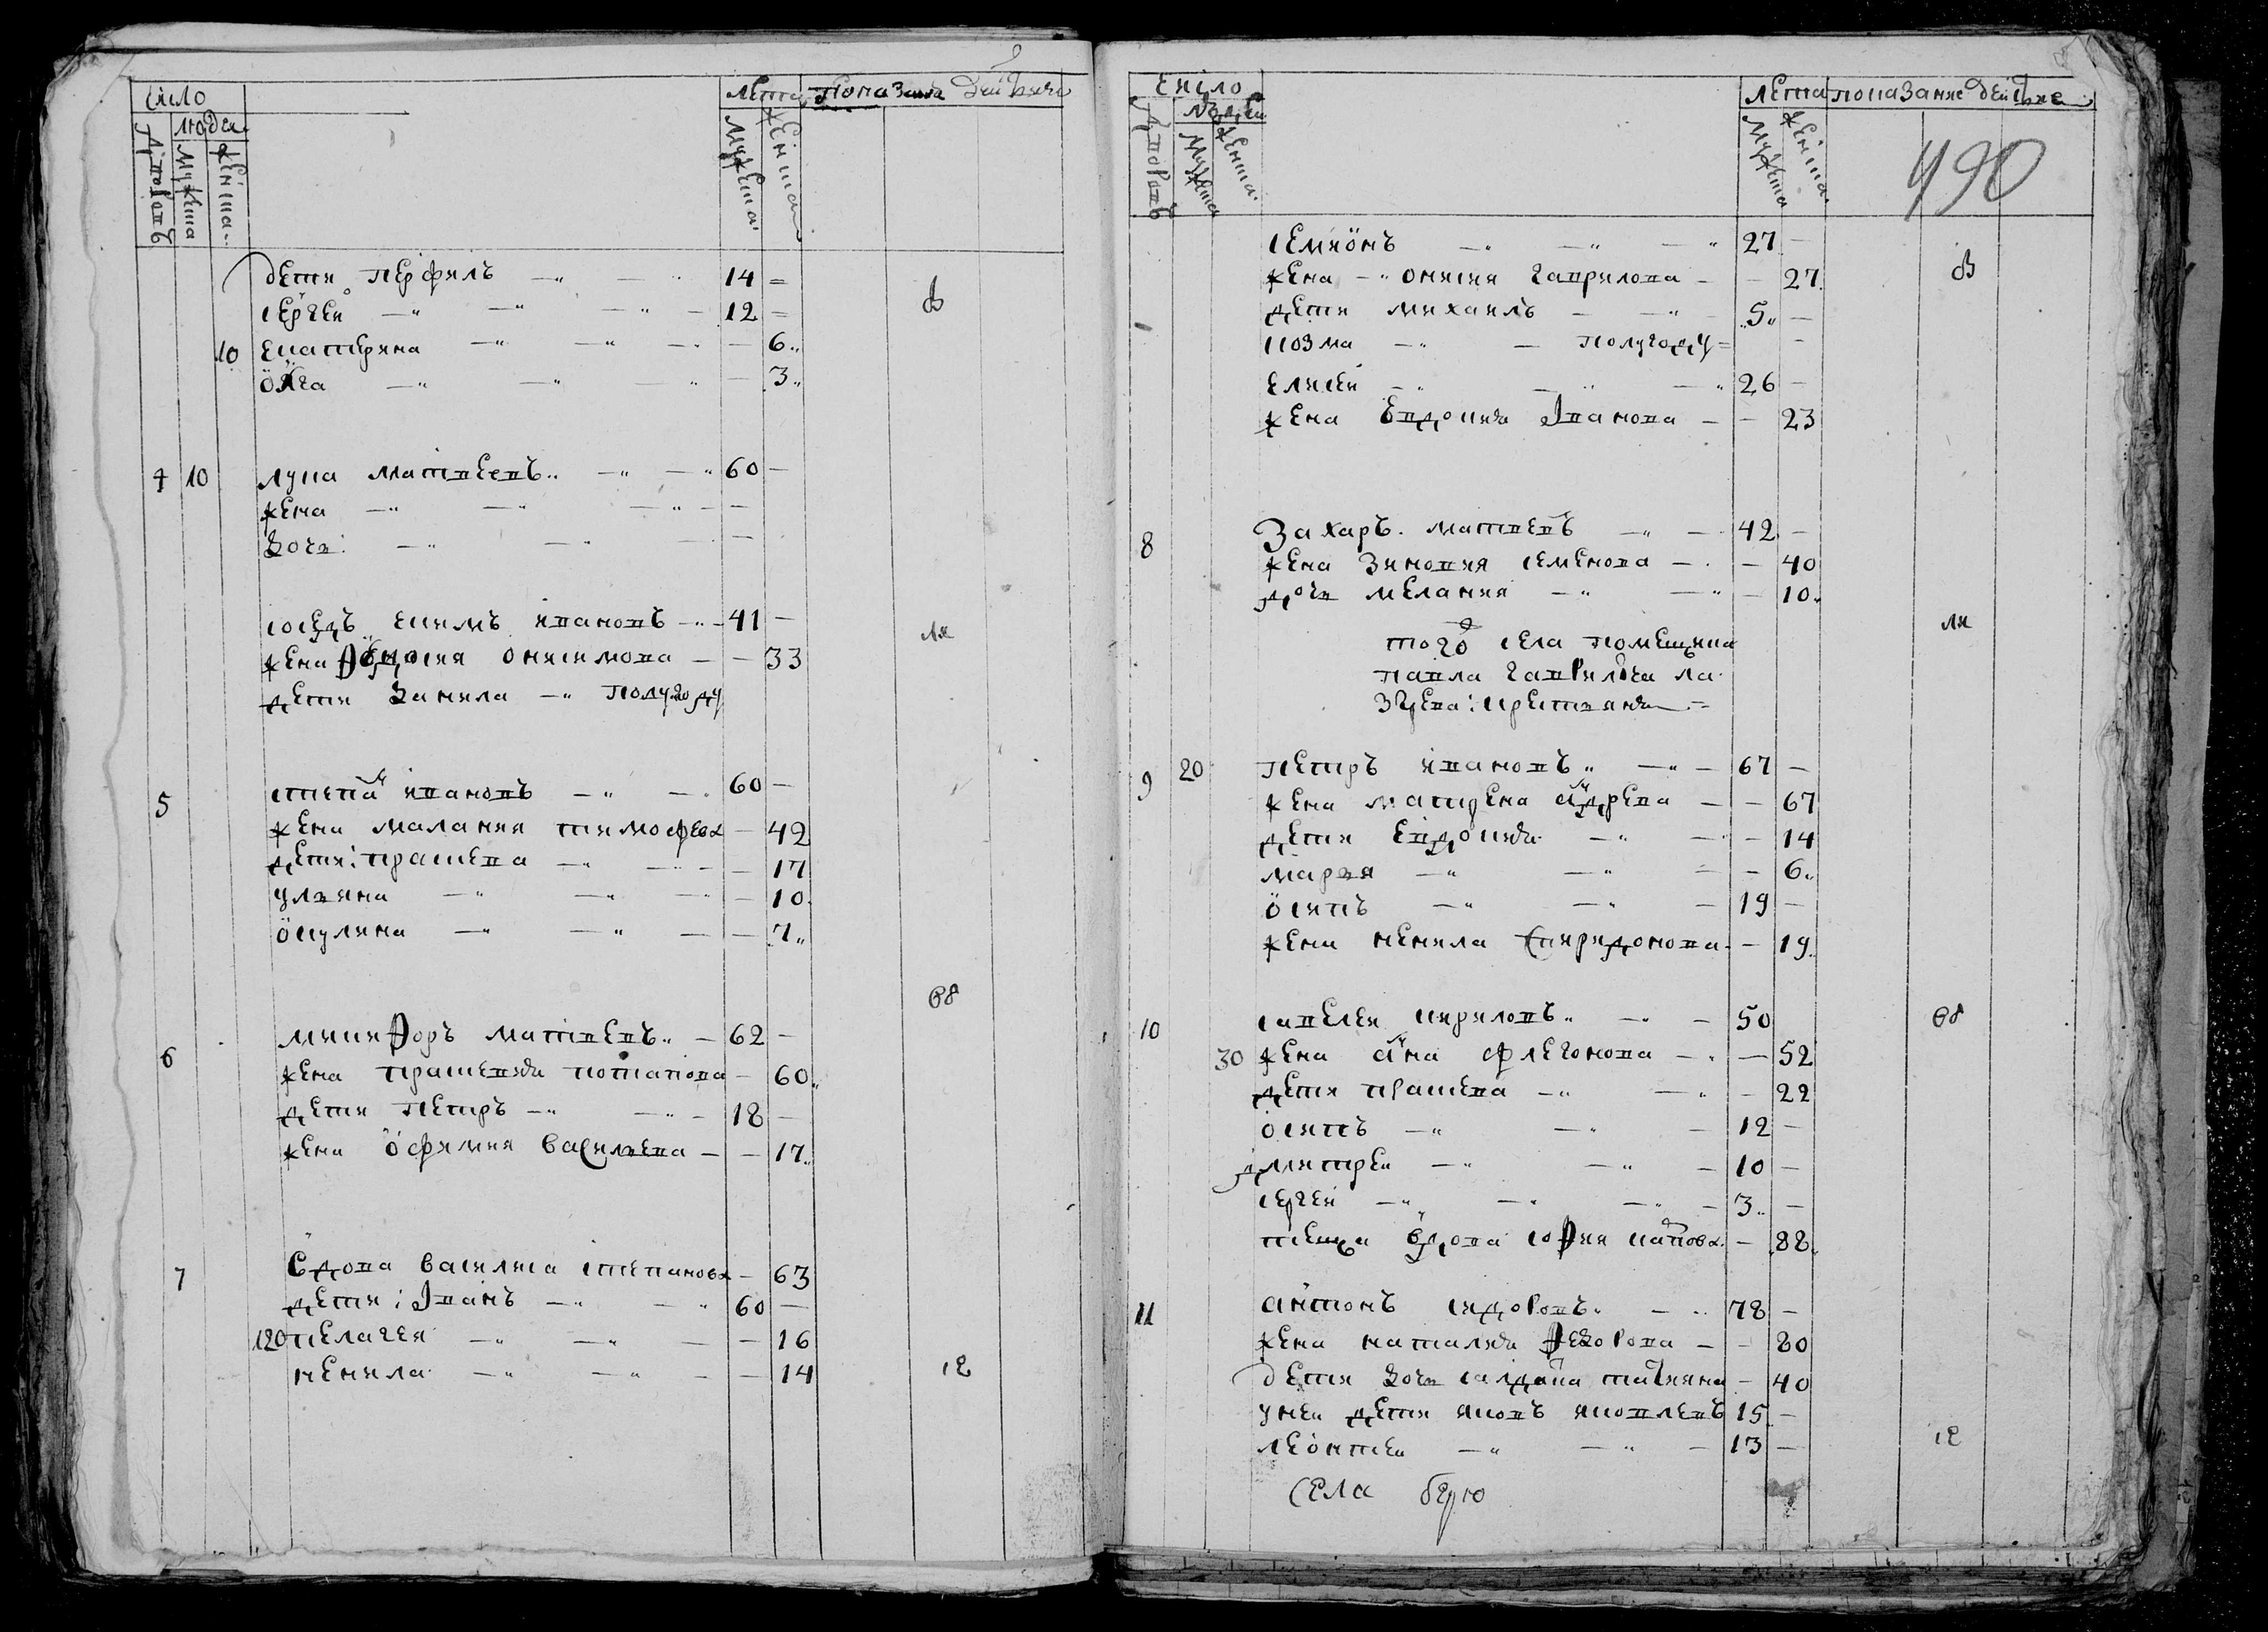 число
людеи
дворовъ
мужеска
женска
лета
показание действа
мужеска
женска
дети перфилъ 14
сергеи 12
10 екатерина 6
олга 3
4 10 лука матвеевъ 60
жена
дочь
соседъ екимъ ивановъ 41
жена федосия онисимова 33
дети данила полугоду
5 степанъ ивановъ 60
жена малания тимофева 42
дети: прасковя 17
уляна 10
окулина 7
6 никифоръ матвеевъ 62
жена прасковия потапова 60
дети петръ 18
жена офимия василева 17
7 вдова василиса степанова 63
дети: иванъ 60
120 пелагея 16
ненила 14
число
людеи
дворовъ
мужеска
женска
лета
показание действие
мужеска
женска
490
семионъ 27
жена онисия гаврилова 27
дети михаилъ 5
козма полугоду
елисеи 26
жена евдокия иванова 23
8 захаръ матвевъ 42
жена зиновия семенова 40
дочь мелания 10
того села помещика
павла гаврилова ла
зарева: крестьяня
9 20 петръ ивановъ 67
жена матрена андрева 67
дети евдокия 14
маря 6
осипъ 19
жена ненила спиридонова 19
10 савелеи кириловъ 50
30 жена анна флегонова 52
дети праскева 22
осипъ 12
дмитреи 10
сергеи 3
теща вдова софия карпова 88
11 антонъ сидоровъ 78
жена наталия федорова 80
дети дочь салдатка татияна 40
у неи дети яковъ яковлевъ 15
леонтеи 13
села берю